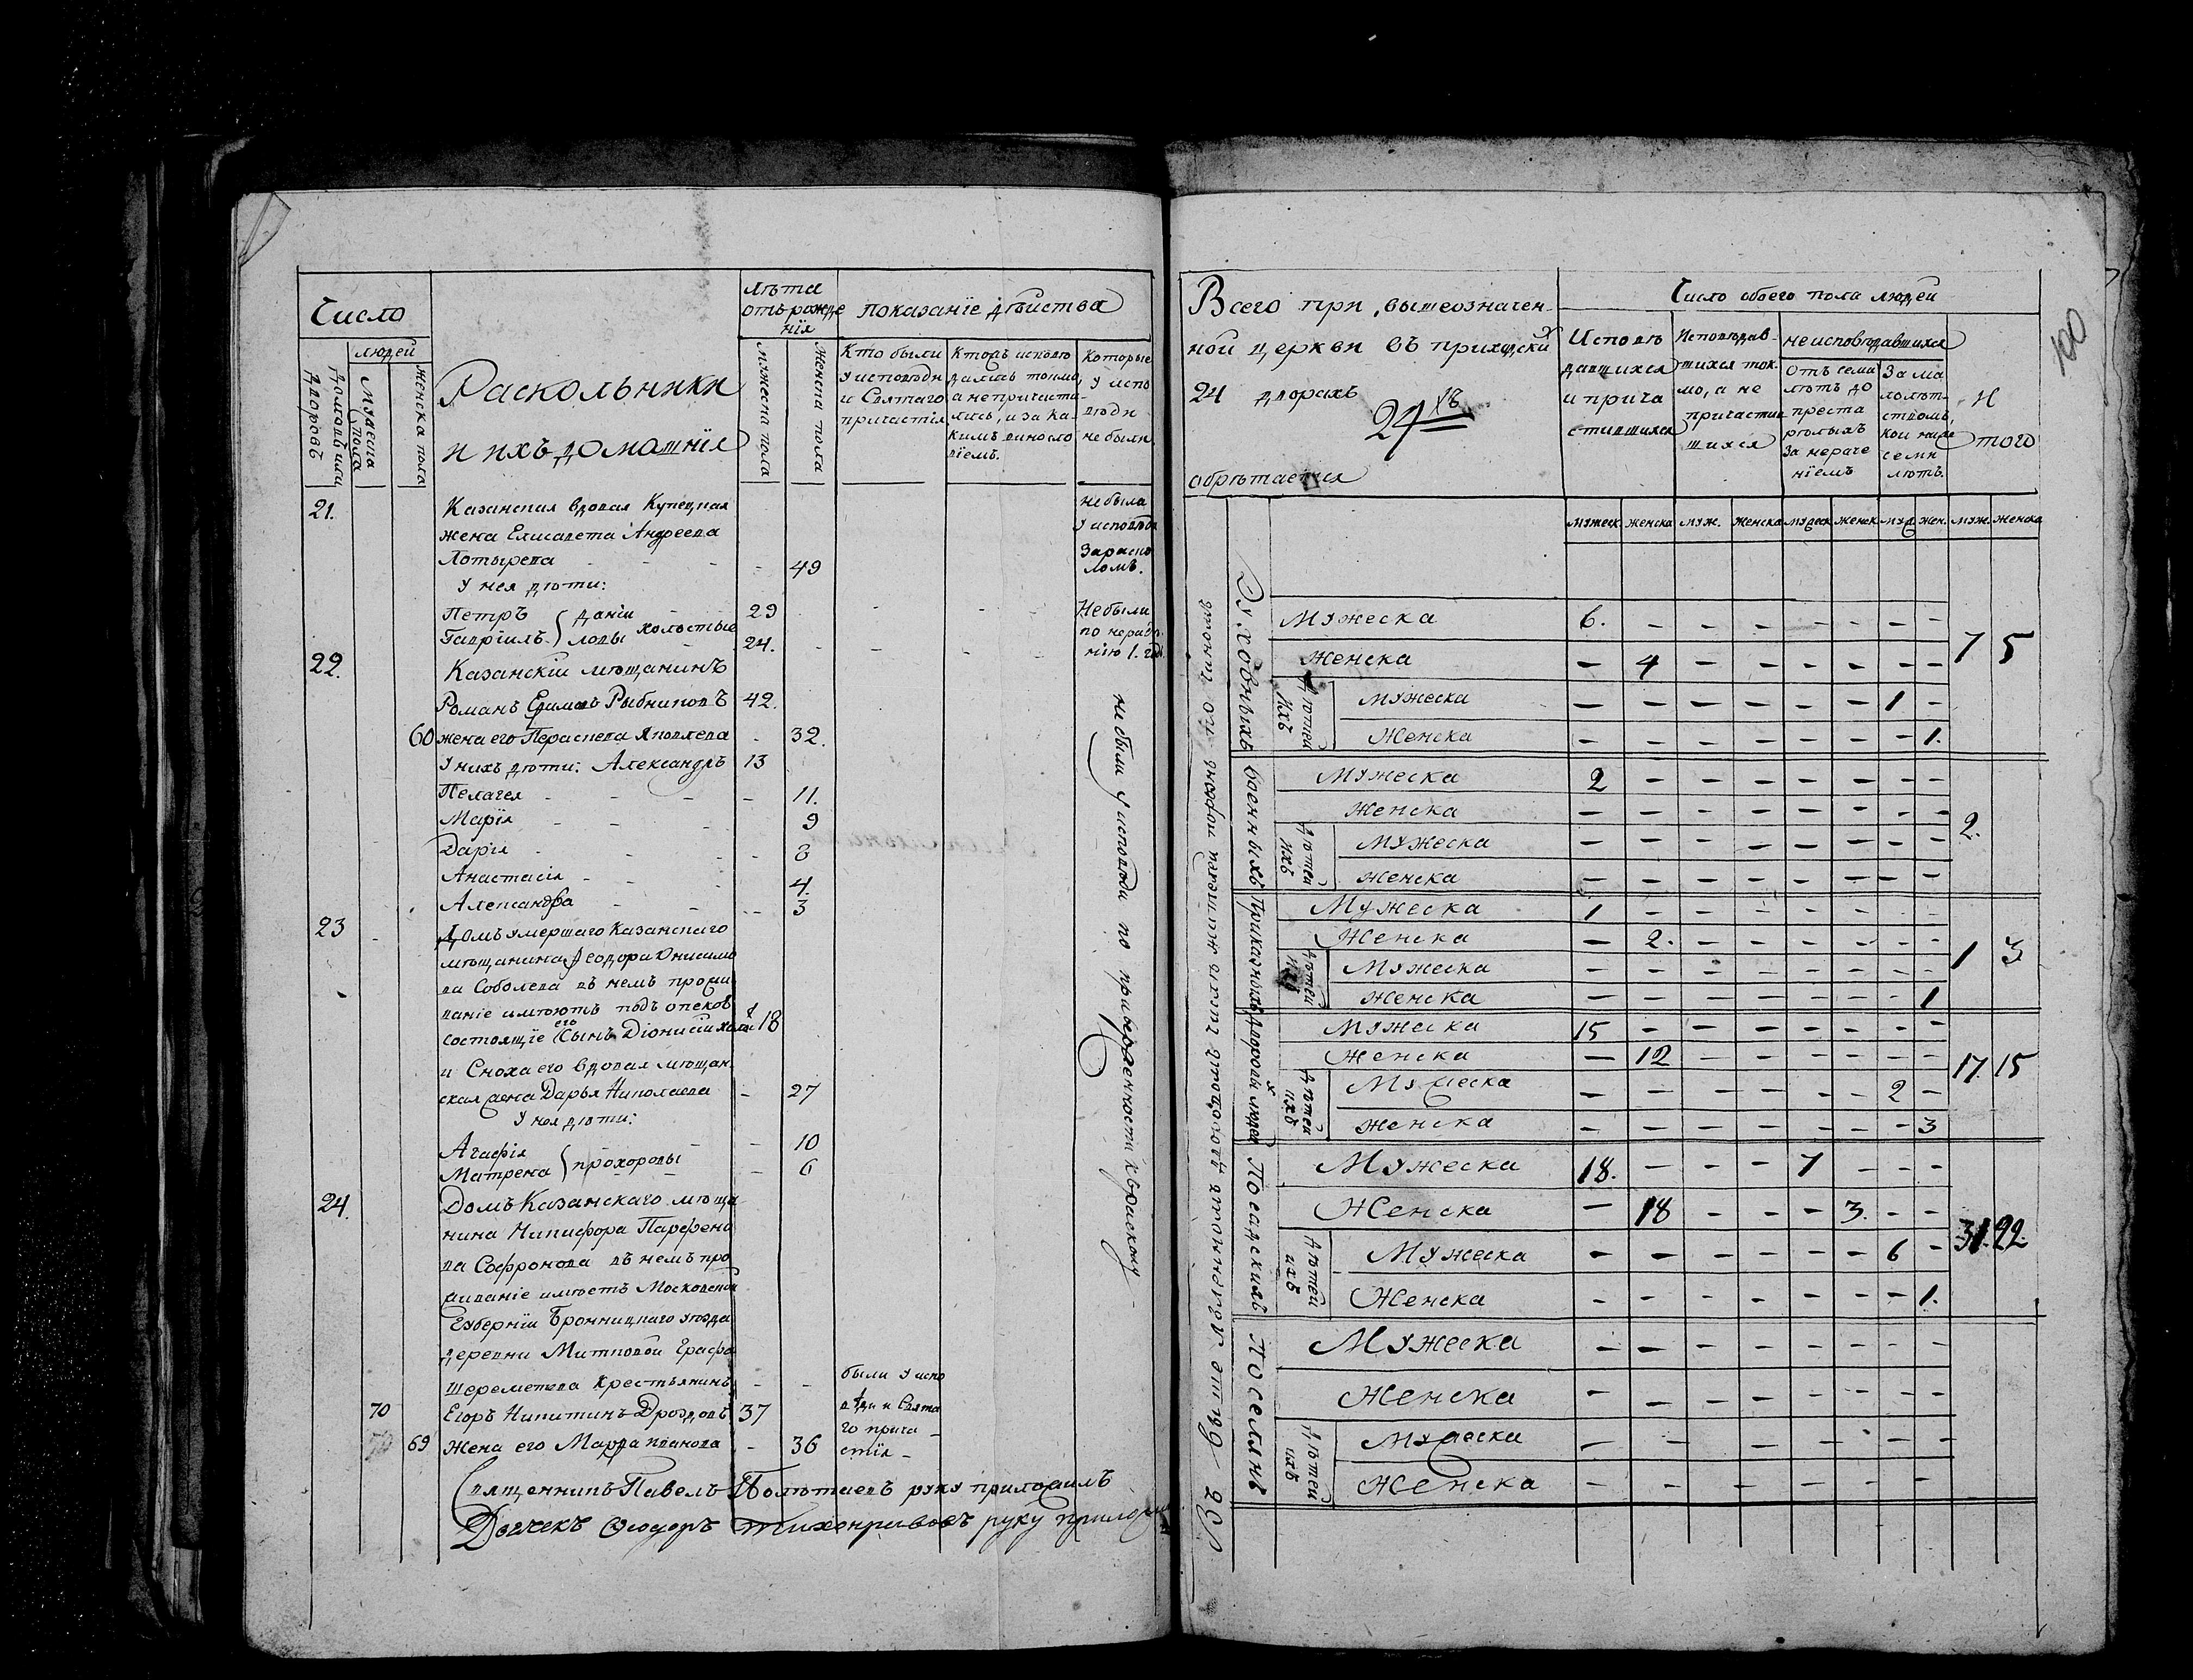 Число
людей
Домовъ или
дворовъ
мужеска
пола
женска пола
Раскольники
и ихъ домашнія
лѣта
отъ рожде
нія
мужеска пола
женска пола
показаніе дѣйства
Кто были
у исповѣди
и Святаго
причастія
Кто исповѣ
дались токмо
а не причасти-
лись, и за ка-
кимъ виносло
віемъ.
Которые
у испо
вѣди
не были
21. Казанская вдовая Купецкая
жена Елисавета Андреева
Хотырева - - - - 49
не была
у исповѣди
За раско
ломъ.
У нея дѣти:
Петръ } дани - - 29
Гавріилъ } ловы холостые 24.
Не были
по нерадѣ
нію 1. годъ
22. Казанскій мѣщанинъ
Романъ Ефимовъ Рыбниковъ 42.
60 жена его Параскева Яковлева - 32.
У нихъ дѣти: Александръ 13
Пелагея - - - - 11.
Марія - - - 9
Дарія - - - - 8
Анастасія - - - 4.
Александра - - - 3
не были у исповѣди по приверженности къ расколу
23 Домъ умершаго Казанскаго
мѣщанина Ѳеодора Онисимо
ва Соболева въ немъ прожи
ваніе имѣютъ подъ опекою
состоящіе его Сынъ Діонисій холостъ 18
и Сноха его вдовая мѣщан
ская жена Дарья Николаева - 27
У нея дѣти:
Агафія } прохоровы - - 10
Матрена } - 6
24. Домъ Казанскаго мѣща
нина Никифора Парфено
ва Софронова въ немъ про
живаніе имѣетъ Московской
Губерніи Бронницкаго уѣзда
деревни Митковой Графа
Шереметева Крестьянинъ - -
70 Егоръ Никитинъ Дроздовъ 37
69 жена его Марфа Иванова - 36
были у испо
вѣди и Свята
го прича -
стія -
Священникъ Павелъ Полѣтаевъ руку приложилъ
Дьячекъ Ѳеодоръ Тихонравовъ руку приложилъ
100
Всего при вышеозначен-
ной церкви въ приходскихъ
24 дворахъ
24
обрѣтается
Число обоего пола людей
Исповѣ
давшихся
и прича
стившихся
Исповѣдав-
шихся ток
мо, а не
причастив
шихся
неисповѣдавшихся
Отъ семи
лѣтъ до
преста
рѣлыхъ
За нераче
ніемъ
За ма
лолѣт-
ствомъ,
кои ниже
семи
лѣтъ.
И
того
мужеск. женска муж. женска мужеск женск муж жен. муж. женска
Въ выше
Духовныхъ
Мужеска 6. - - - - - - -
Женска - 4 - - - - - -
7 5
Дѣтей
ихъ
мужеска - - - - - - 1 -
женска - - - - - - - 1.
Военныхъ
Мужеска 2 - - - - - - -
женска - - - - - - - -
2.
Дѣтей
ихъ
мужеска - - - - - - - -
женска - - - - - - - -
Приказныхъ
Мужеска 1 - - - - - - -
Женска - 2. - - - - - -
1 3
Дѣтей
ихъ
Мужеска - - - - - - - -
женска - - - - - - - 1
Дворовыхъ людей
Мужеска 15 - - - - - - -
Женска - 12 - - - - - -
17. 15
Дѣтей
ихъ
Мужеска - - - - - - 2 -
женска - - - - - - - 3
Посадскихъ
Мужеска 18. - - - 7 - - -
Женска - 18 - - - 3. - -
31. 22.
Дѣтей
ихъ
Мужеска - - - - - - 6 -
Женска - - - - - - - 1.
Поселянъ
Мужеска - - - - - - - -
Женска - - - - - - - -
Дѣтей
ихъ
Мужеска - - - - - - - -
Женска - - - - - - - -